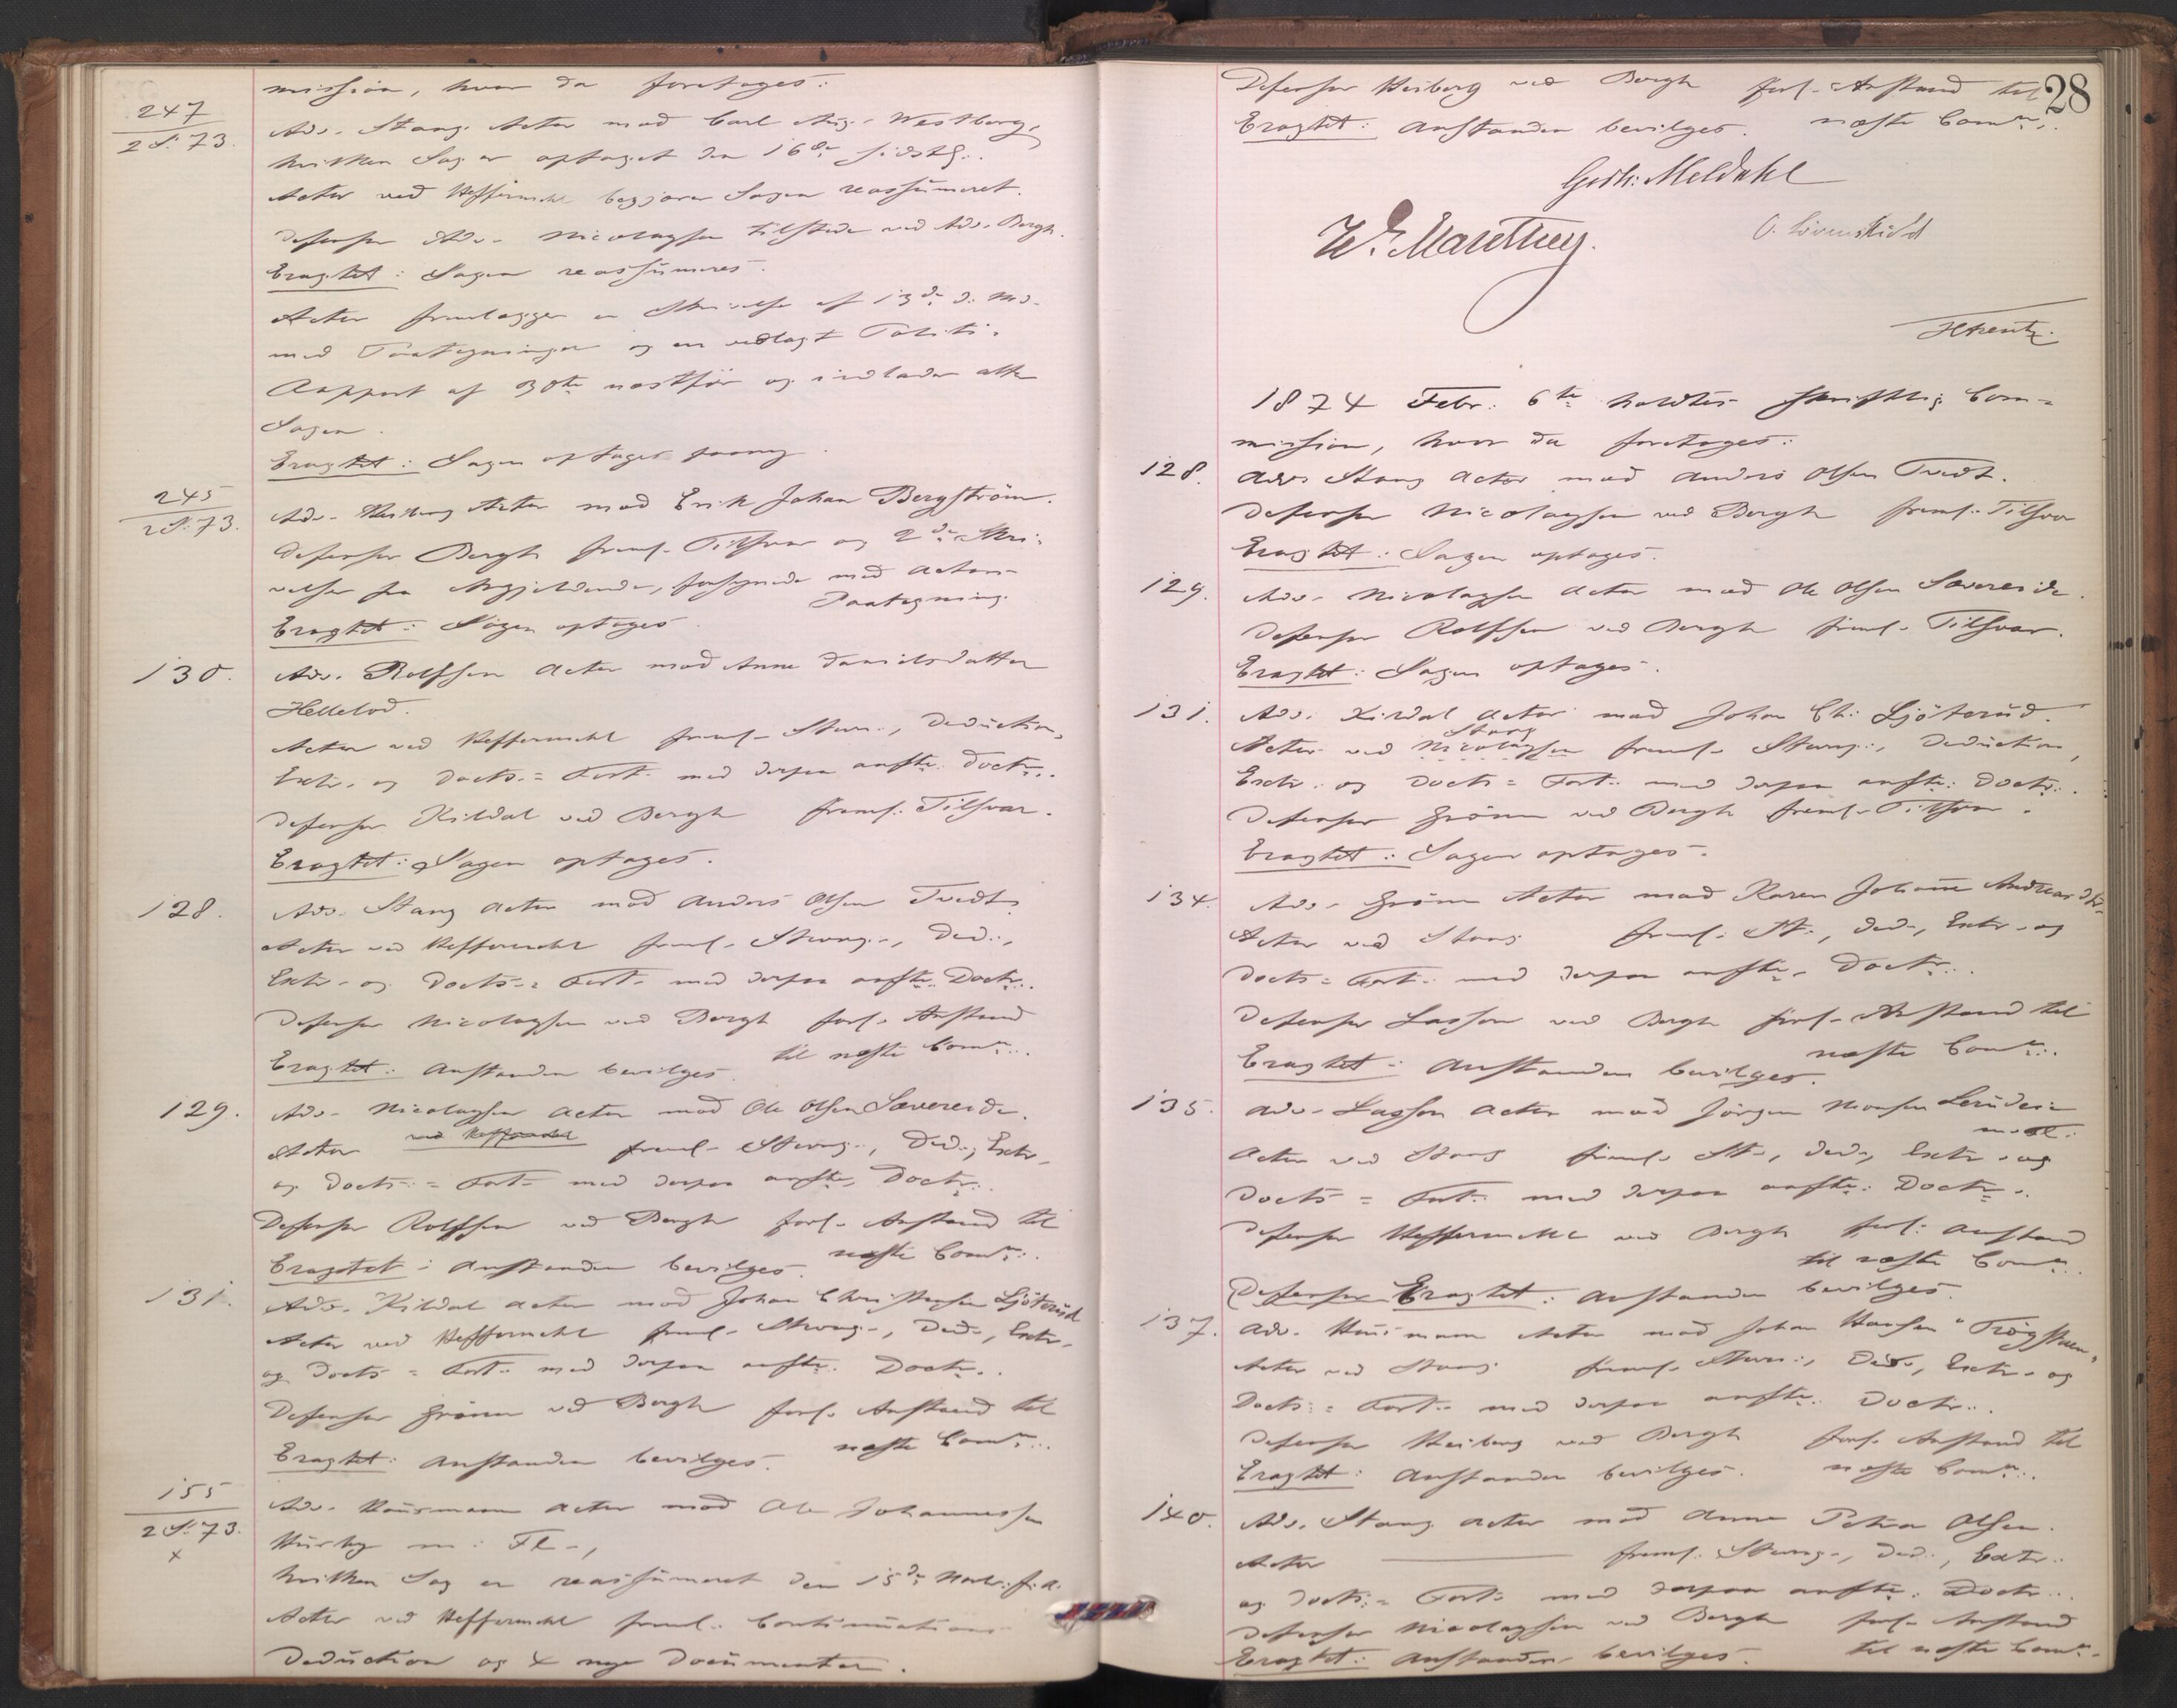 mission, hvor da foretoges:
247
2 S. 73.
Adv. Stang Actor mod Carl Aug. Westberg,
hvilken Sag er optaget den 16de sidstl.
Actor ved Heffermehl begjærer Sagen reassümeret.
Defensor Adv. Nicolaysen tilstede ved Adv. Bergh.
Eragtet: Sagen reassümeres.
Actor fremlægger en Skrivelse af 13de d. Md.
med Paategninger og en vedlagt Politi-
Rapport af 30te næstfør og indlader atter
Sagen.
Eragtet: Sagen optages paany.
245
2 S. 73.
Adv. Heiberg Actor mod Erik Johan Bergström.
Defensor Bergh freml. Tilsvar og 2de Skri-
velser fra Angjeldende, forsynede med Actors
Paategning.
Eragtet: Sagen optages.
130.
Adv. Rolfsen Actor mod Anne Danielsdatter
Hellelod.
Actor ved Heffermehl freml. Stevn., Deduction,
Extr. og Docts.= Fort. med derpaa anfte. Doctr.
Defensor Kildal ved Bergh freml. Tilsvar.
Eragtet: Sagen optages.
128.
Adv. Stang Actor mod Anders Olsen Tvedt.
Actor ved Heffermehl freml. Stevng., Ded.,
Extr. og Docts.= Fort. med derpaa anfte. Doctr.
Defensor Nicolaysen ved Bergh forl. Anstand
til næste Comn.
Eragtet: Anstanden bevilges.
129.
Adv. Nicolaysen Actor mod Ole Olsen Sævereide.
Actor ved Heffermehl freml. Stevng., Ded., Extr.
og Docts.= Fort. med derpaa anfte. Doctr.
Defensor Rolfsen ved Bergh forl. Anstand til
næste Comn.
Eragtet: Anstanden bevilges.
131.
Adv. Kildal Actor mod Johan Christensen Ljöterüd
Actor ved Heffermehl freml. Stevng., Ded., Extr.
og Docts.= Fort. med derpaa anfte. Doctr.
Defensor Grönn ved Bergh forl. Anstand til
næste Comn.
Eragtet: Anstanden bevilges.
155
2 S. 73.
x
Adv. Haüsmann Actor mod Ole Johannessen
m. Fl.,
hvilken Sag er reassümeret den 15de Novbr. f. A.
Actor ved Heffermehl freml. Continüations
Deduction og 4 nye Documenter.
28
Defensor Heiberg ved Bergh forl. Anstand til
næste Comn.
Eragtet: Anstanden bevilges.
Gerh: Meldahl
O. Lövenskiold
HArentz.
1874 Febr. 6te holdtes skriftlig Com-
mission, hvor da foretoges:
128.
Adv. Stang Actor mod Anders Olsen Tvedt.
Defensor Nicolaysen ved Bergh freml. Tilsvar
Eragtet: Sagen optages.
129.
Adv. Nicolaysen Actor mod Ole Olsen Sævereide.
Defensor Rolfsen ved Bergh freml. Tilsvar.
Eragtet: Sagen optages.
131.
Adv. Kildal Actor mod Johan Ch. Ljöterüd.
Stang
Actor ved Nicolaysen freml. Stevng., Deduction,
Extr. og Docts.= Fort. med derpaa anfte. Doctr.
Defensor Grönn ved Bergh freml. Tilsvar.
Eragtet: Sagen optages.
134.
Adv. Grönn Actor mod Karen Johanne Andreasdtr.
Actor ved Stang freml. St., Ded., Extr. og
Docts.= Fort. med derpaa anfte. Doctr.
Defensor Lasson ved Bergh forl. Anstand til
næste Comn.
Eragtet: Anstanden bevilges.
135.
Adv. Lasson Actor mod Jörgen
Actor ved Stang freml. St., Ded., Extr. og
Docts.= Fort. med derpaa anfte. Doctr.
Defensor Heffermehl ved Bergh forl. Anstand
til næste Comn.
Defensor Eragtet: Anstanden bevilges.
137.
Adv. Haüsmann Actor mod Johan Hansen "Trögstuen"
Actor ved Stang freml. Stevn., Ded., Extr. og
Docts.= Fort. med derpaa anfte. Doctr.
Defensor Heiberg ved Bergh forl. Anstand til
næste Comn.
Eragtet: Anstanden bevilges.
140.
Adv. Stang Actor mod Anne Petra Olsen.
Actor ——— freml. Stevng., Ded., Extr.
og Docts.= Fort. med derpaa anfte. Doctr.
Defensor Nicolaysen ved Bergh forl. Anstand
til næste Comn.
Eragtet: Anstanden bevilges.